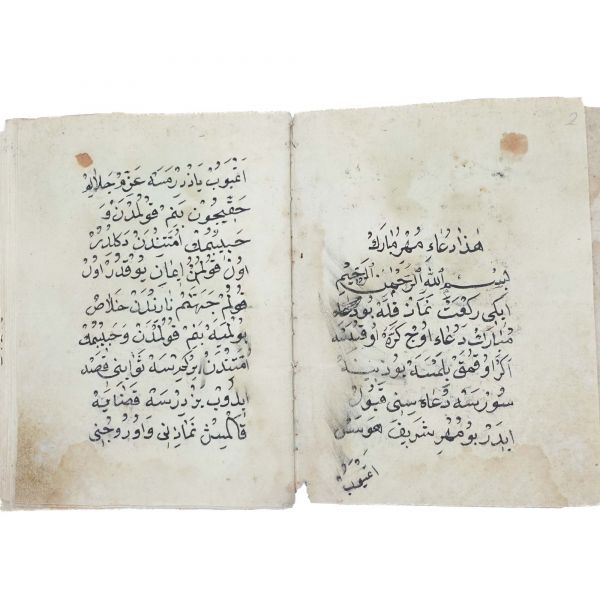 2
هذا دعاء مهر مبارك
بسم الله الرحمن الرحيم
ايكى ركعت نماز قله بو دعاء
مبارك دعاء اوج كره اوقنسه
اكر اوقمق بلمسه يود
سورسه دعاء سنى قبول
ايدر بو مهر شريف هر
اغيوب
اغيوب ياذدرمسه عزم جلالم
حقيجون بنم قولمدن و
حبيبمك امتندن دكلدر
اول قولمن ايمان يوقدر اول
قولم جهنم نارندن خلاص
بولميه بنم قولمدن و حبيبمك
امتندن بركمسه نوا بنى قصد
ايدوب يزدرسه قضايه
قالمش نمازنى و اوروجنى